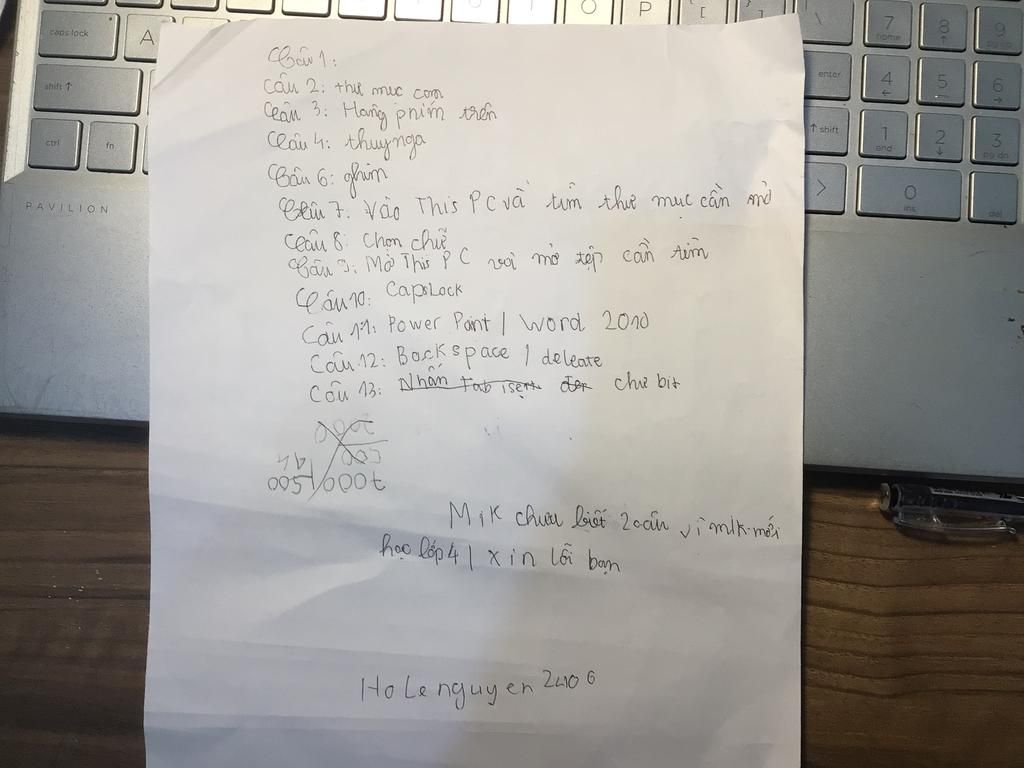 caps lock
A
O
P
[
\
7
home
8
9
pg up
shift
enter
4
5
6
ctrl
fn
shift
1
end
2
3
pg dn
>
0
ins
del
PAVILION
Câu 1:
Câu 2: thư mục con
Câu 3: Hàng phím trên
Câu 4: thuynga
Câu 6: ghim
Câu 7: Vào This PC và tìm thư mục cần mở
Câu 8: Chọn chữ
Câu 9: Mở This PC và mở tệp cần tìm
Câu 10: CapsLock
Câu 11: Power Point / Word 2010
Câu 12: Backspace / deleate
Câu 13: Nhấn Tab isert chư bit
7000/500
Mik chưa biết 2 câu vì mik mới
học lớp 4 / xin lỗi bạn
Holenguyen2406